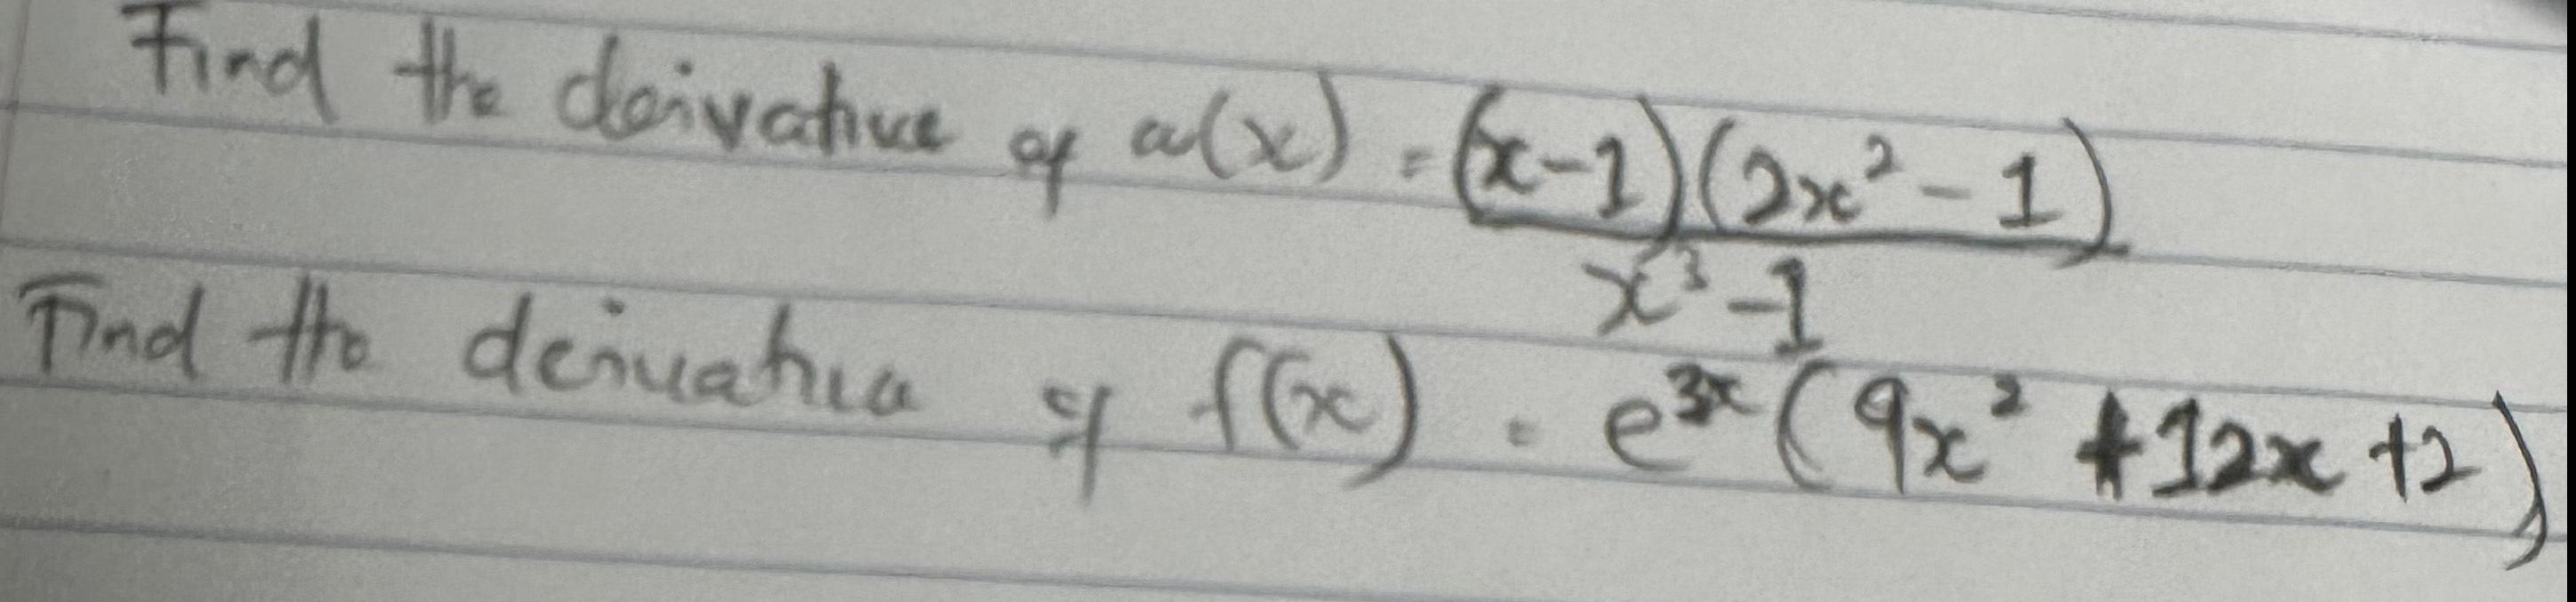 Find the derivative of a(x) = (x-1)(2x² - 1)
x³ - 1
Find the derivative of f(x) = e³ˣ (9x² + 12x + 2)